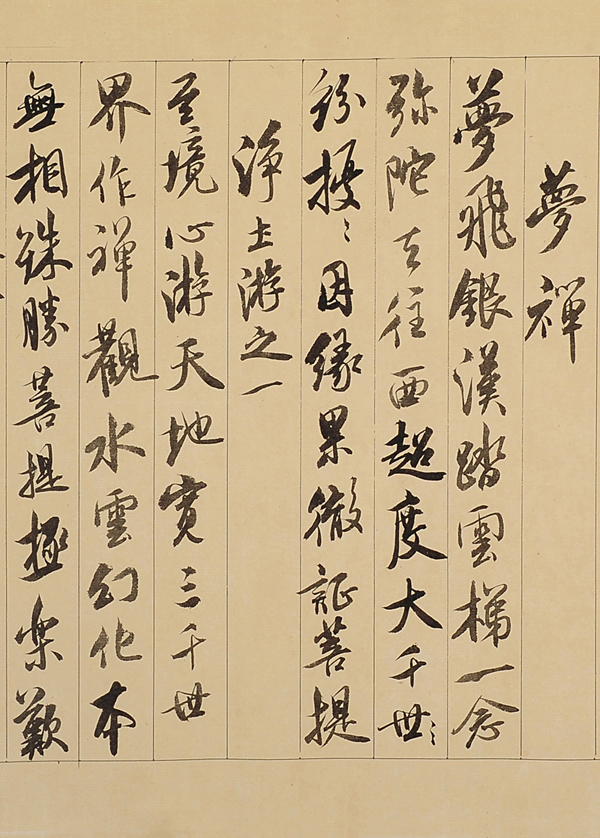 夢禪
夢飛銀漢踏雲梯一念
彌陀玄往西超度大千世〻
紛擾〻因緣果徹証菩提
淨土游之一
至境心游天地寬三千世
界作禪觀水雲幻化本
無相殊勝菩提極樂歎